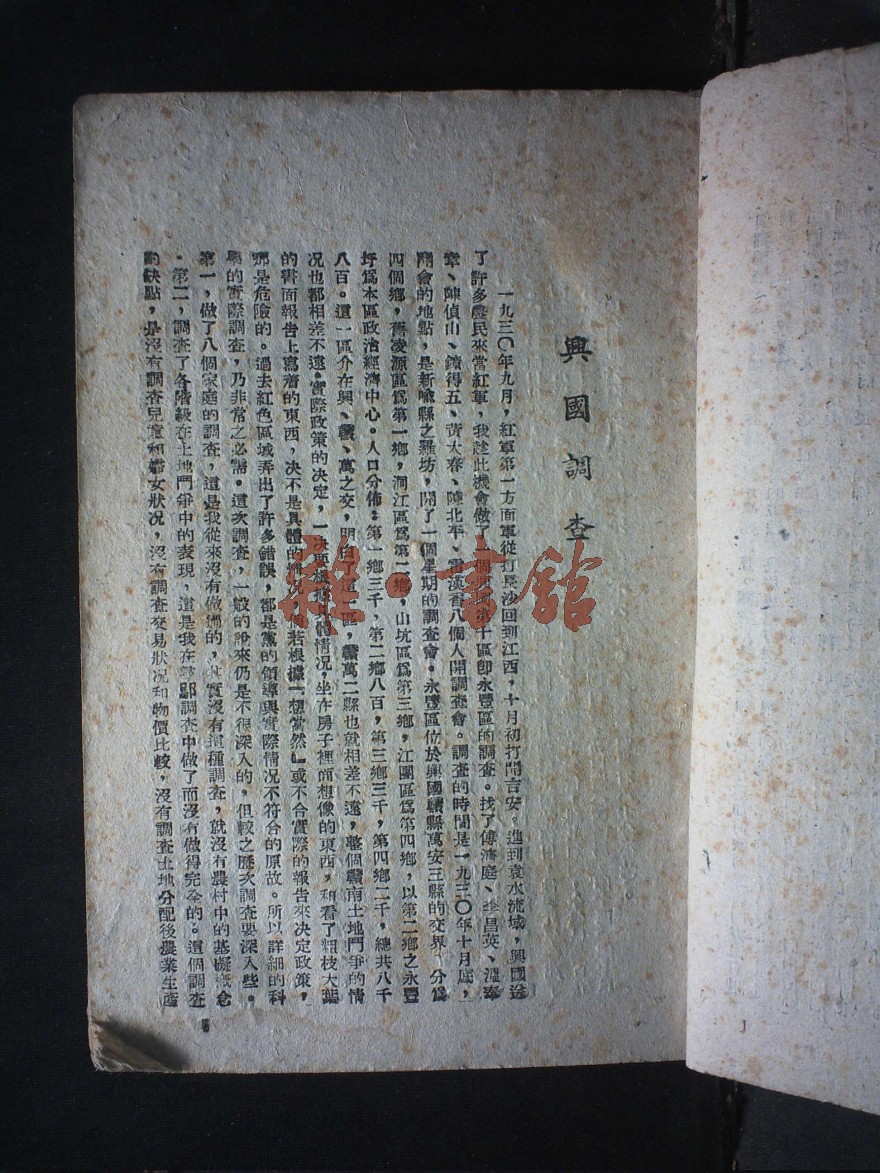 興國調查
一九三〇年九月，紅軍第一方面軍從打長沙回到江西，十月初打開吉安。進到袁水流域，興國送
了許多農民來當紅軍，我趁此機會做了一個興國第十區卽永豐區的調查。找了傅濟庭、李昌英、溫奉
章、陳偵山、鍾得五、黃大春、陳北平、雷漢香八個人開調查會。調查的時間是一九三〇年十月底，
開會的地點，是新喩縣之羅坊，開了一個星期的調查會。永豐區位於興國贛縣萬安三縣的交界，分爲
四個鄉，舊凌源區爲第一鄉，洞江區爲第二鄉，山坑區爲第三鄉，江團區爲第四鄉，以第二鄉之永豐
圩爲本區政治經濟中心。人口分佈：第一鄉三千，第二鄉八百，第三鄉三千，第四鄉二千，總共八千
八百。這一區介在興、贛、萬之交，明白了這一區，贛萬二縣也就相差不遠，整個贛南土地鬥爭的情
況也都相差不遠。實際政策的决定，一决要根據具體情況，坐在房子裡面想像的東西，和看了粗枝大葉
的書面報告上寫着的東西，决不是具體的情況。倘若根據「想當然」或不合實際的報告來决定政策，
那是危險的。過去紅色區域弄出了許多錯誤，都是黨的領導與實際情况不符合的原故。所以詳細的科
學的實際調查，乃非常之必需。這次調查，一般的說來仍是不很深入的，但較之歷次調查要深入些。
第一，做了八個家庭的調查，這是我從來沒有做過的，其實沒有這種調查，就沒有農村中的基礎概念
。第二，調查了各階級在土地鬥爭中的表現，這是我在尋鄔調查中做了而沒有做得完全的。這個調查
的缺點，是沒有調查兒童和婦女狀況，沒有調查交易狀況和物價比較，沒有調查土地分配後農業生產
雜·書館